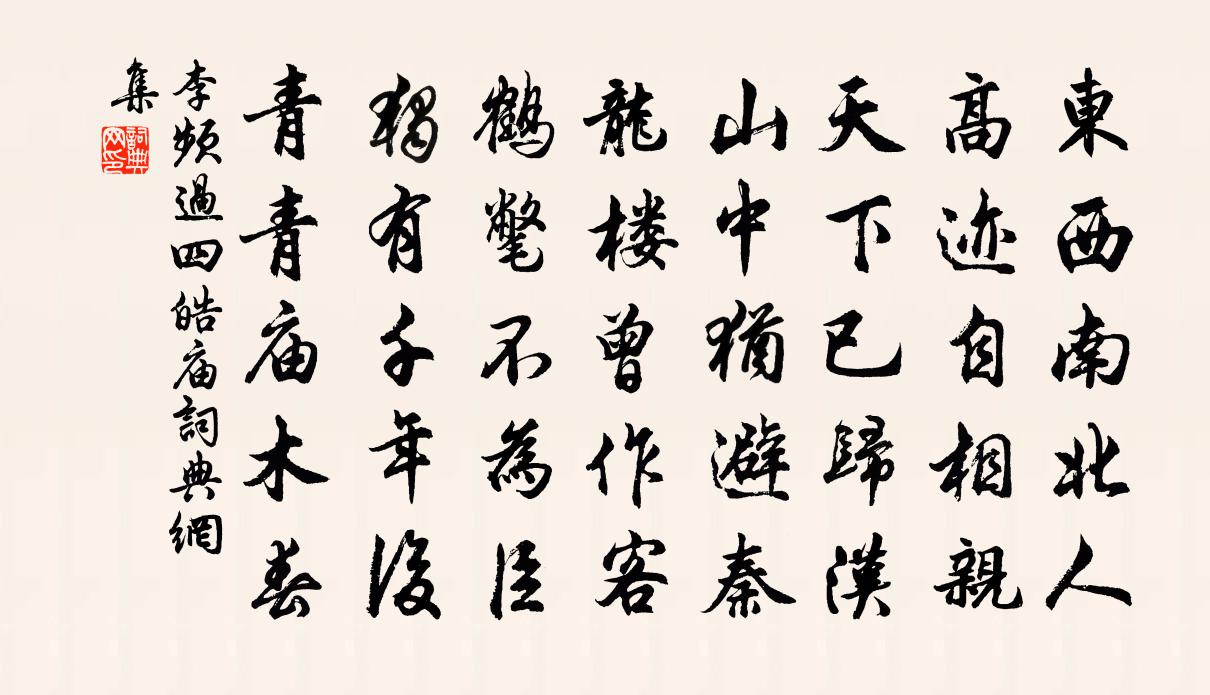 東西南北人
高迹自相親
天下已歸漢
山中猶避秦
龍楼曾作客
鶴氅不為臣
獨有千年後
青青庙木春
李頻過四皓庙詞典網
集
詞典网印